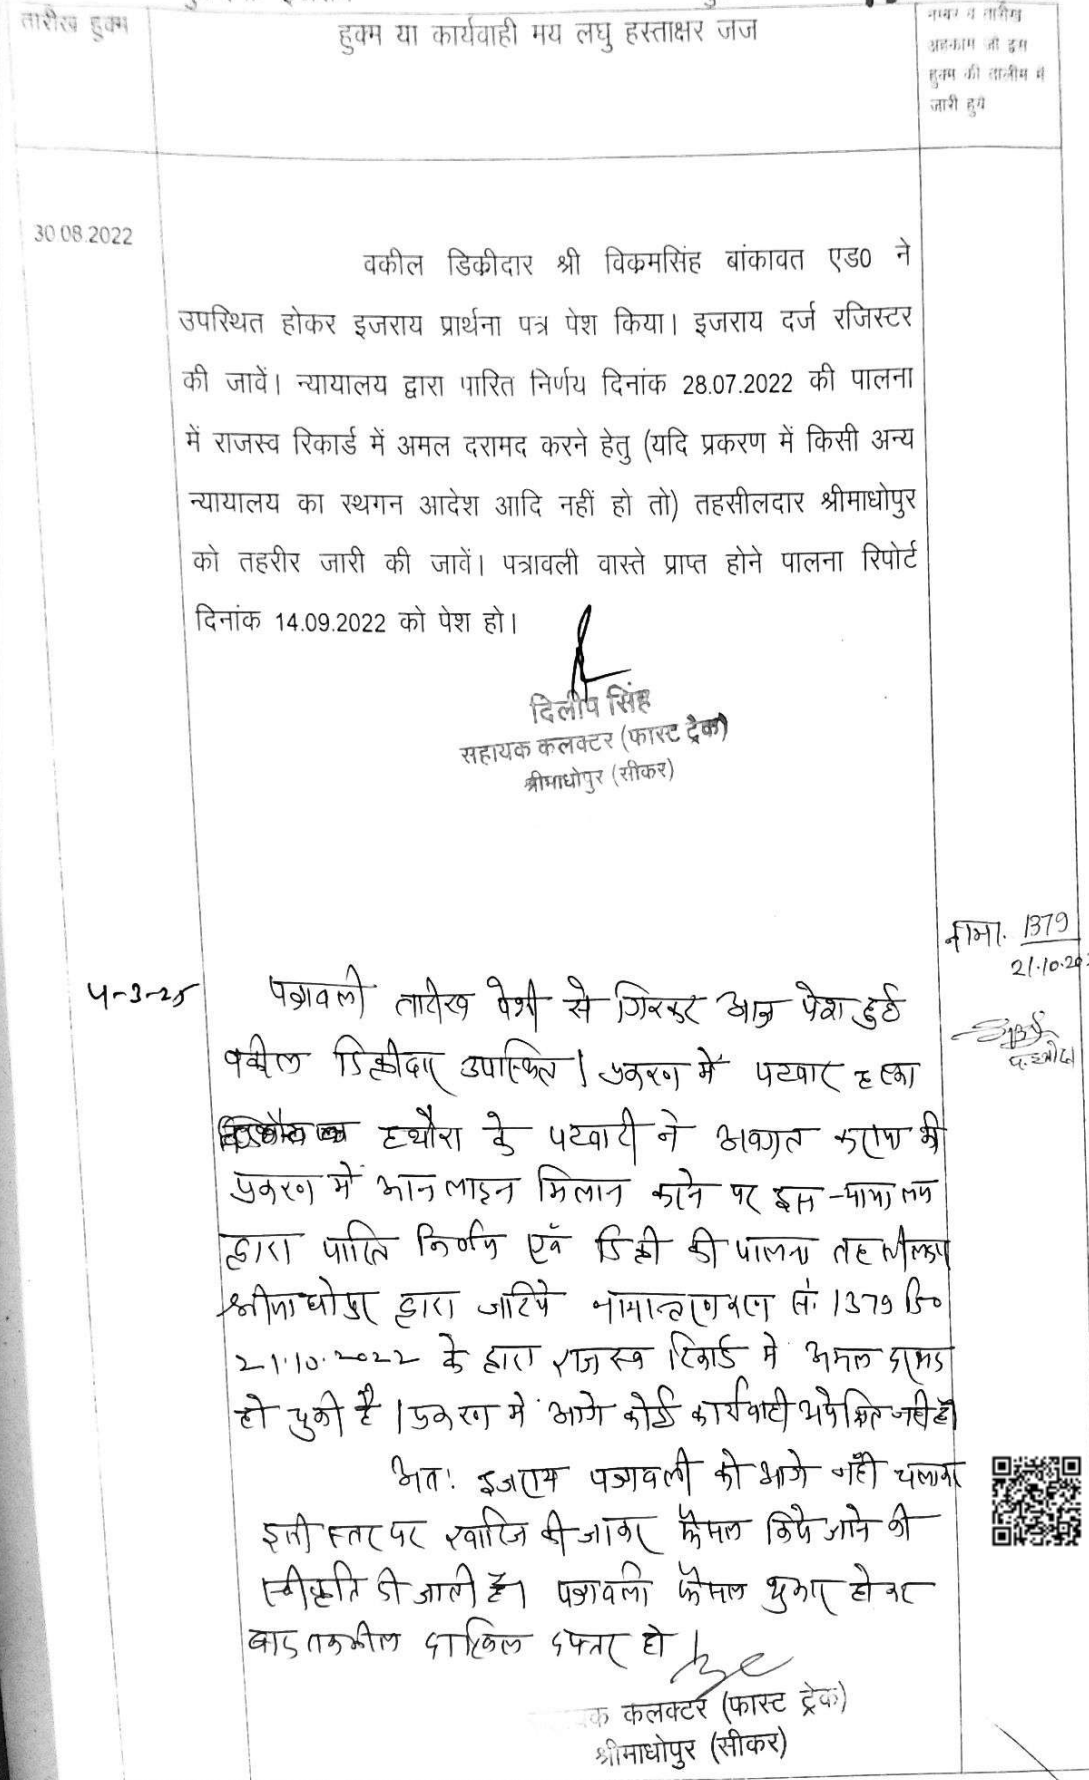 तारीख हुक्म
हुक्म या कार्यवाही मय लघु हस्ताक्षर जज
नम्बर व तारीख
अहकाम जो इस
हुक्म की तालीम में
जारी हुये
30.08.2022
वकील डिकीदार श्री विक्रमसिंह बांकावत एड0 ने
उपस्थित होकर इजराय प्रार्थना पत्र पेश किया। इजराय दर्ज रजिस्टर
की जावें। न्यायालय द्वारा पारित निर्णय दिनांक 28.07.2022 की पालना
में राजस्व रिकार्ड में अमल दरामद करने हेतु (यदि प्रकरण में किसी अन्य
न्यायालय का स्थगन आदेश आदि नहीं हो तो) तहसीलदार श्रीमाधोपुर
को तहरीर जारी की जावें। पत्रावली वास्ते प्राप्त होने पालना रिपोर्ट
दिनांक 14.09.2022 को पेश हो।
दिलीप सिंह
सहायक कलक्टर (फास्ट ट्रेक)
श्रीमाधोपुर (सीकर)
नामा. 1379
21.10.20
5-3-25
पत्रावली तारीख पेशी से गिरकर आज पेश हुई
वकील डिक्रीदार उपस्थित। प्रकरण में पटवार हल्का
हथौरा के पटवारी ने अवगत कराया की
प्रकरण में आनलाइन मिलान करने पर इस न्यायालय
द्वारा पारित निर्णय एवं डिक्री की पालना तहसीलदार
श्रीमाधोपुर द्वारा जरिये नामान्तरणकरण सं. 1379 दि०
21.10.2022 के द्वारा राजस्व रिकार्ड मे अमल दरामद
हो चुकी है। प्रकरण मे आगे कोई कार्यवाही अपेक्षित नही है।
अतः इजराय पत्रावली को आगे नहीं चलाकर
इसी स्तर पर खारिज की जाकर फैसल किये जाने की
स्वीकृति दी जाती है। पत्रावली फैसल शुमार होकर
बाद तकमील दाखिल दफ्तर हो
क कलक्टर (फास्ट ट्रेक)
श्रीमाधोपुर (सीकर)